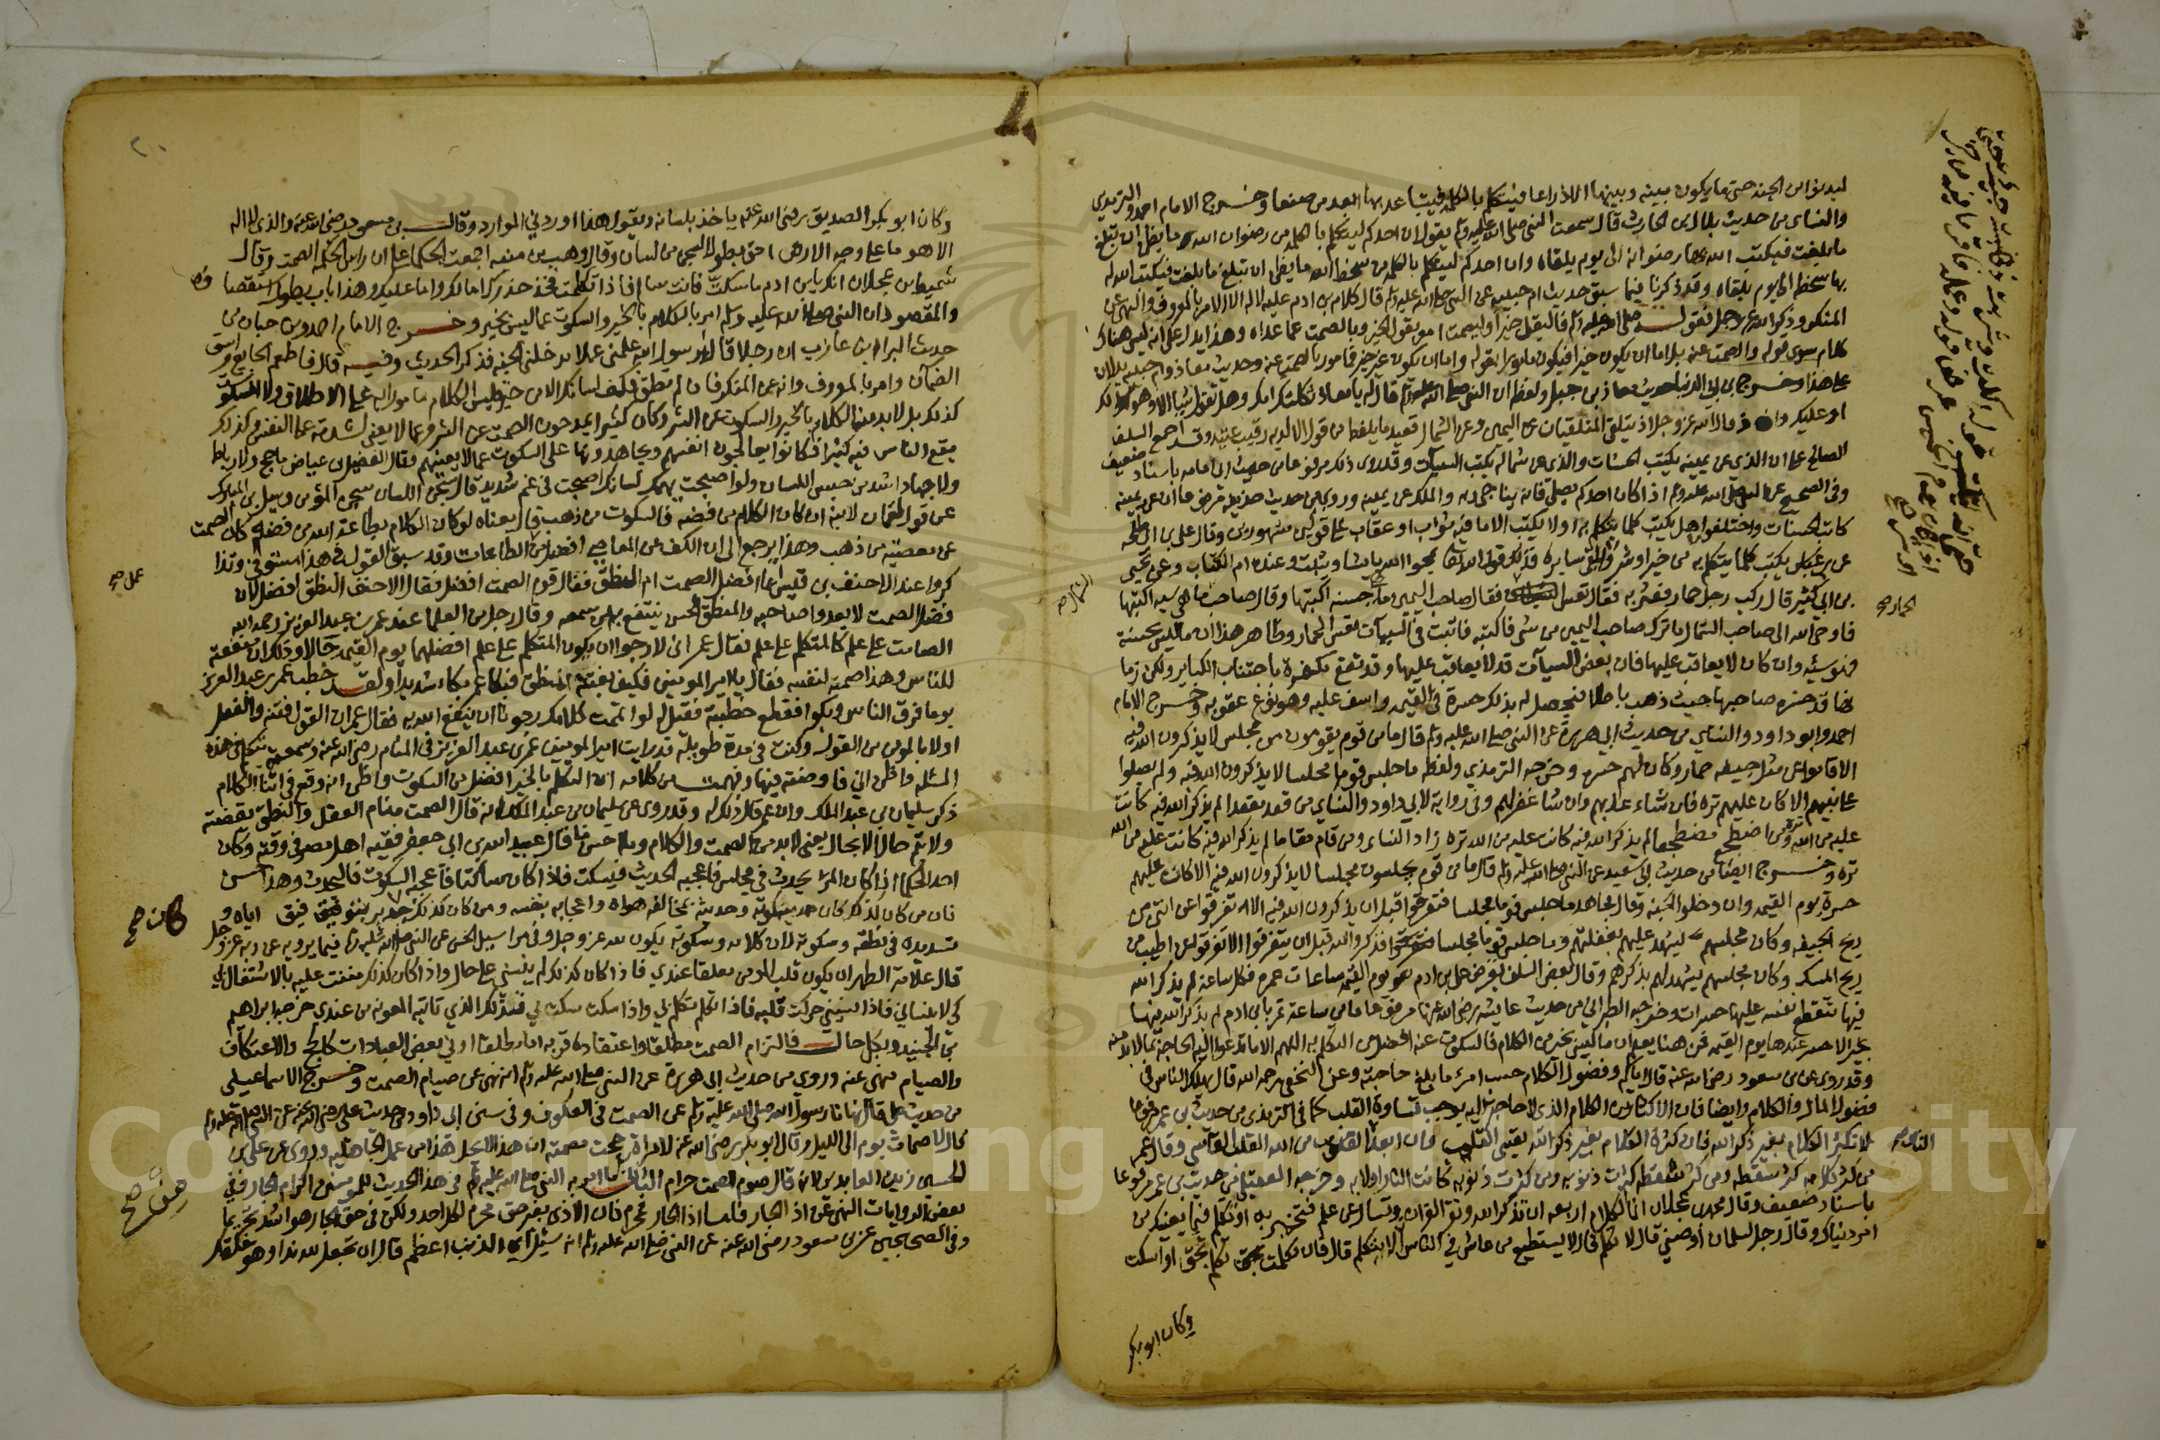 ليدنوا من الجنة حتى ما يكون بينه وبينها الا ذراعا فيتكلم بالكلمة فيتباعد بها ابعد من صنعا وخرج الامام احمد والترمذي
والنساى من حديث بلال بن الحارث قال سمعت النبي صلى الله عليه وسلم يقول ان احدكم ليتكلم بالكلمة من رضوان الله ما يظن ان تبلغ
ما بلغت فيكتب الله بها رضوانه الى يوم يلقاه وان احدكم ليتكلم بالكلمة من سخط الله ما يظن ان تبلغ ما بلغت فيكتب الله له
بها سخطه الى يوم يلقاه وقد ذكرنا فيما سبق حديث ام حبيبة عن النبي صلى الله عليه وسلم قال كلام بن ادم عليه لا له الا الامر بالمعروف والنهي عن
المنكر وذكر الله عز وجل فقوله صلى الله عليه وسلم فاليقل خيرا او ليصمت امر بقول الخير وبالصمت عما عداه وهذا يدل على انه ليس هناك
كلام سوى قوله والصمت عنه بل اما ان يكون خيرا فيكون مامورا بقوله واما ان يكون غير خير فمامور بالصمت عنه وحديث معاذ وام حبيبة يدلان
على هذا وخرج بن ابى الدنيا حديث معاذ بن جبل ولفظه ان النبي صلى الله عليه وسلم قال له يا معاذ ثكلتك امك وهل تقول شيا الا وهو لك
او عليك وقد قال الله عز وجل اذ يتلقى المتلقيان عن اليمين وعن الشمال قعيد ما يلفظ من قول الا لديه رقيب عتيد وقد اجمع السلف
الصالح على ان الذي عن يمينه يكتب الحسنات والذي عن شماله يكتب السيات وقد روى ذلك مرفوعا من حديث ابى امامه باسناد ضعيف
وفى الصحيح عن النبي صلى الله عليه وسلم اذا كان احدكم يصلي فانه يناجي ربه والملك عن يمينه وروى من حديث حذيفه مرفوعا ان عن يمينه
كاتب الحسنات واختلفوا هل يكتب كلما تكلم به او لا يكتب الا ما فيه ثواب او عقاب على قولين مشهورين وقال على بن ابى طلحه
عن بن عباس يكتب كلما يتكلم به من خير او شر
بن ابى كثير قال ركب رجل حمار فعثر به فقال تعس فقال صاحب اليمين ما هي حسنه اكتبها وقال صاحب ما هي سيه اكتبها
فاوحى الله الى صاحب الشمال ما ترك صاحب اليمين من شى فاكتبه فاثبت في السيات تعس الحمار وظاهر هذا ان ما ليس بحسنة
فهو سيئه وان كان لا يعاقب عليها فان بعض السيآت قد لا يعاقب عليها وقد تقع مكفرة باجتناب الكباير ولكن زما
نها قد خسره صاحبها حيث ذهب باطلا فيحصل له بذلك حسرة في القيمه واسف عليه وهو نوع عقوبه وخرج الامام
احمد وابو داود والنساي من حديث ابى هريرة عن النبي صلى الله عليه وسلم قال ما من قوم يقومون من مجلس لا يذكرون الله فيه
الا قاموا عن مثل جيفه حمار وكان لهم حسرة وخرجه الترمذي ولفظه ما جلس قوم مجلسا لا يذكرون الله فيه ولم يصلوا
على نبيهم الا كان عليهم ترة فان شاء عذبهم وان شا غفر لهم وفي رواية لابي داود والنساي من قعد مقعدا لم يذكر الله فيه كانت
عليه من الله ترة ومن اضطجع مضطجعا لم يذكر الله فيه كانت عليه من الله تره زاد النساى ومن قام مقاما لم يذكر الله فيه كانت عليه من الله
تره وخرج ايضا من حديث ابى سعيد عن النبي صلى الله عليه وسلم قال ما من قوم يجلسون مجلسا لا يذكرون الله فيه الا كان عليهم
حسرة يوم القيمه وان دخلوا الجنة وقال مجاهد ما جلس قوم مجلسا فتفرقوا قبل ان يذكرون الله فيه الا تفرقوا عن انتن من
ريح الجيفه وكان مجلسهم يشهد عليهم بغفلتهم وما جلس قوما مجلسا فذكروا الله قبل ان يتفرقوا الا تفرقوا عن اطيب من
ريح المسك وكان مجلسهم يشهد لهم بذكرهم وقال بعض السلف يعرض على بن ادم يوم القيمه ساعات عمره فكل ساعة لم يذكر الله
فيها تتقطع نفسه عليها حسرات وخرجه الطبراني من حديث عايشه رضى الله عنها مرفوعا ما من ساعة تمر بابن ادم لم يذكر الله فيها
بخير الا حسر عندها يوم القيمه فمن هنا يعلم ان ما ليس بخير من الكلام فالسكوت عنه افضل من التكلم به اللهم الا ما تدعوا اليه الحاجة مما لا بد منه
وقد روى عن بن مسعود رضى الله عنه قال اياكم وفضول الكلام حسب امرئ ما بلغ حاجته وعن النخعي رحمه الله قال يهلك الناس في
فضول المال والكلام وايضا فان الاكثار من الكلام الذي لا حاجة اليه يوجب قساوة القلب كما في الترمذي من حديث بن عمر مرفوعا
لا تكثر الكلام بغير ذكر الله فان كثرة الكلام بغير ذكر الله يقسى القلب وان ابعد القلوب من الله القلب القاسي وقال عمر
من كثر كلامه كثر سقطه ومن كثر سقطه كثرت ذنوبه ومن كثرت ذنوبه كانت النار اولا به وخرجه العقيلي من حديث بن عمر مرفوعا
باسناد ضعيف وقال محمد بن عجلان انما الكلام اربعه ان تذكر الله وتقرا القران وتسال عن علم فتخبر به او تكلم فيما يعنيك من
امر دنياك وقال رجل لسلمان اوصني قال لا تكلم قال لا يستطيع من عاش في الناس الا يتكلم قال فان تكلمت تكلم بحق او اسكت
وكان ابو بكر
الحمار صح
الشمال صح
وكان ابو بكر الصديق رضى الله عنه ياخذ بلسانه ويقول هذا اوردني الموارد وقال بن مسعود رضى الله عنه والذى لا اله
الا هو ما على وجه الارض احق بطول السجن من لسان وقال وهب بن منبه اجمعت الحكما على ان راس الحكمة الصمت وقال
شميط بن عجلان انك يا بن ادم ما سكت فانت سالم فاذا تكلمت فخذ حذرك اما لك واما عليك وهذا باب يطول استقصاوه
والمقصود ان النبي صلى الله عليه وسلم امر بالكلام بالخير والسكوت عما ليس بخير وخرج الامام احمد وبن حبان من
حديث البراء بن عازب ان رجلا قال يا رسول الله علمني عملا يدخلني الجنة فذكر الحديث وفيه قال فاطعم الجايع واسق
الضمآن وامر بالمعروف وانه عن المنكر فان لم تطق فكف لسانك الا من خير فليس الكلام مامورا به على الاطلاق ولا السكوت
كذلك بل لابد من الكلام بالخير والسكوت عن الشر وكان كثيرا يمدحون الصمت عن الشر وعما لا يعنى لشدته على النفس وكذلك
يقع الناس فيه كثيرا فكانوا يعالجون انفسهم ويجاهدونها على السكوت عما لا يعنيهم وقال الفضيل بن عياض ما حج ولا رباط
ولا جهاد اشد من حبس اللسان ولو اصبحت يهمك لسانك اصبحت في غم شديد قال سجن اللسان سجن المؤمن وسيل بن المبارك
عن قول لقمان لابنه ان كان الكلام من فضه فالسكوت من ذهب قال معناه لو كان الكلام بطاعة الله من فضه كان الصمت
عن معصيته من ذهب وهذا يرجع الى ان الكف عن المعاصي افضل من الطاعات وقد سبق القول في هذا مستوفى وتذا
كروا عند الاحنف بن قيس ايما افضل الصمت ام المنطق فقال قوم الصمت افضل فقال الاحنف النطق افضل لان
فضل الصمت لا يعدوا صاحبه والمنطق الحسن ينتفع به من سمعه وقال رجل من العلما عند عمر بن عبد العزيز رحمه الله
الصامت على علم كالمتكلم على علم فقال عمر انى لارجوا ان يكون المتكلم على علم افضلهما يوم القيمه حالا وذلك ان منفعته
للناس وهذا صمته لنفسه فقال يا امير المومنين فكيف بفتنة المنطق فبكا عمر بكاء شديدا ولقد خطب عمر بن عبد العزيز
يوما فرق الناس وبكوا فقطع خطبته فقيل له لو اتممت كلامك رجونا ان ينفع الله به فقال عمر ان القول فتنه والفعل
اولا بالمومن من القول وكنت في مدة طويلة قد رايت امير المومنين عمر بن عبد العزيز في المنام رضى الله عنه وسمعته يتكلم في هذه
المسئله واظن اني فاوضته فيها وفهمت من كلامه ان التكلم بالخير افضل من السكوت واظن انه وقع في اثنا الكلام
ذكر سليمان بن عبد الملك وان عمر قال ذلك له وقد روى عن سليمان بن عبد الملك انه قال الصمت منام العقل والنطق يقضته
ولا يتم حال الا بحال يعنى لا بد من الصمت والكلام وما احسن ما قال عبيد الله بن ابى جعفر فقيه اهل مصر فى وقته وكان
احد الحكما اذا كان المرء يحدث في مجلس فاعجبه الحديث فليسكت فاذا كان ساكتا فاعجبه السكوت فاليحدث وهذا حسن
فان من كان كذلك كان سكوته وحديثه بمخالفه هواه واعجابه بنفسه ومن كان كذلك كان جدير بتوفيق الله اياه و
تسديده في نطقه وسكوته لان كلامه وسكوته يكون لله عز وجل وفي مراسيل الحسن عن النبي صلى الله عليه وسلم فيما يرويه عن ربه عز وجل
قال علامة الطهر ان يكون قلب العبد عندي معلقا فاذا كان كذلك لم ينسني على حال واذا كان كذلك مننت عليه بالاشتغال بي
كي لا ينساني فاذا نسيني حركت قلبه فاذا تكلم تكلم لي واذا سكت سكت لي فذلك الذي تاتيه المعونه من عندي خرجه ابراهيم
بن الجنيد وبكل حال فالتزام الصمت مطلقا واعتقاده قربه اما مطلقا او في بعض العبادات كالحج والاعتكاف
والصيام منهى عنه وروى من حديث ابى هريرة عن النبي صلى الله عليه وسلم انه نهى عن صيام الصمت وخرج الاسماعيلى
من حديث على قال نهانا رسول الله صلى الله عليه وسلم عن الصمت في العكوف وفى سنن ابى داود من حديث على رضى الله عنه عن النبي صلى الله عليه وسلم
قال لا صمات يوم الى الليل وقال ابو بكر رضى الله عنه لامراة حجت مصمته ان هذا لا يحل هذا من عمل الجاهليه وروى عن على بن
الحسين زين العابدين انه قال صوم الصمت حرام الثانى مما امر به النبي صلى الله عليه وسلم في هذا الحديث للمومنين اكرام الجار وفي
بعض الروايات النهى عن اذى الجار فاما اذا الجار فمحرم فان الاذى بغير حق محرم لكل احد ولكن فى حق الجار هو اشد تحريما
وفى الصحيحين عن بن مسعود رضى الله عنه عن النبي صلى الله عليه وسلم انه سئل اى الذنب اعظم قال ان تجعل لله ندا وهو خلقك
عمل صح
كان صح